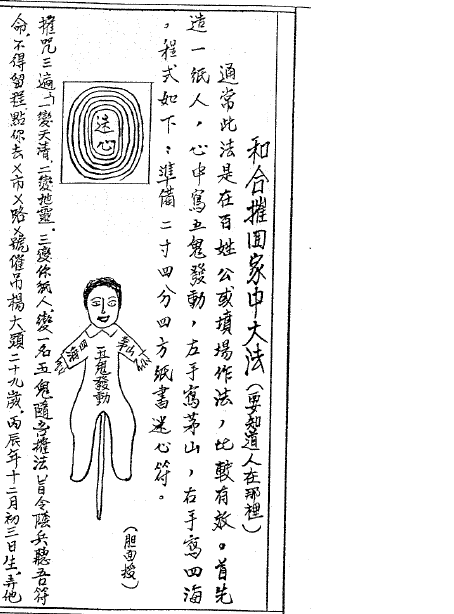 和合摧回家中大法（要知道人在那裡）
通常此法是在百姓公或墳場作法，比較有效。首先
造一紙人，心中寫五鬼發動，左手寫茅山，右手寫四海
，程式如下：準備二寸四分四方紙書迷心符。
迷心
茅山
五鬼發動
四海
（胆面授）
摧咒三遍，一變天清，二變地靈，三變你紙人，變一名五鬼隨吾摧法旨令陰兵聽吾符
命，不得留程，點你去×市×路×號催吊楊大頭二十九歲，丙辰年十二月初三日生，弄他